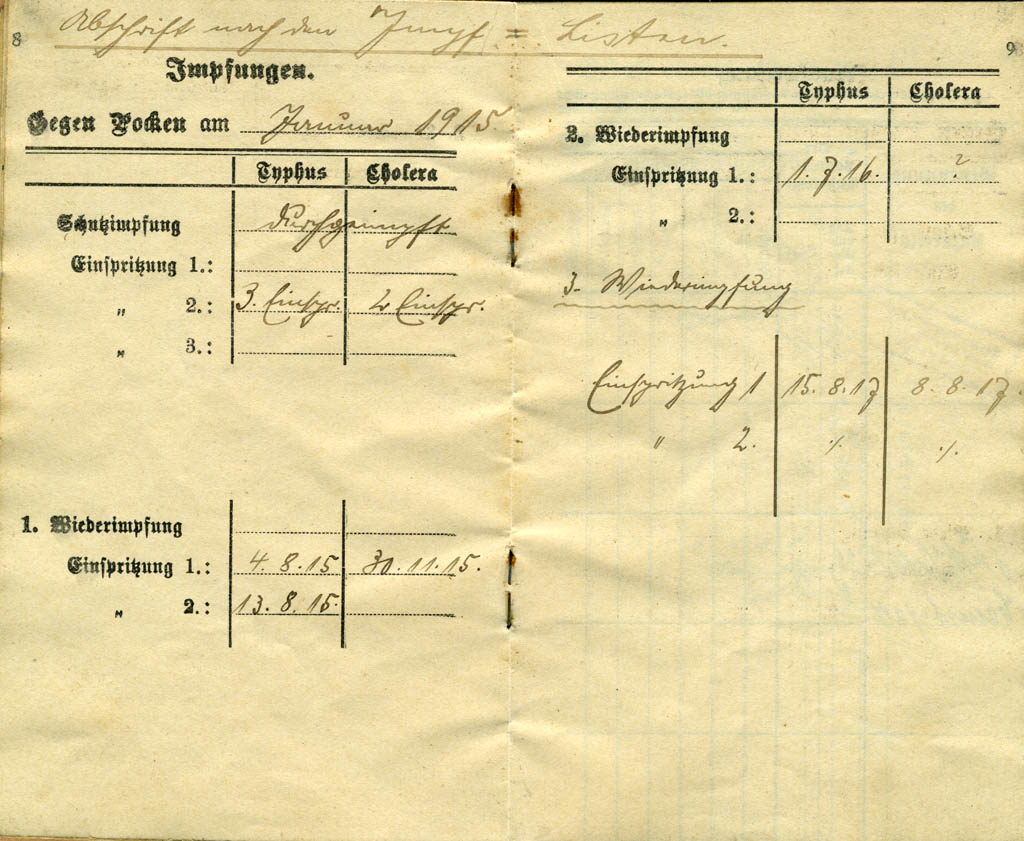 8
Abschrift nach den Impf = Listen.
Impfungen.
Gegen Pocken am Januar 1915.
Typhus Cholera
Schutzimpfung durchgeimpft
Einspritzung 1.:
„ 2.: 3. Einspr. 2 Einspr.
„ 3.:
1. Wiederimpfung
Einspritzung 1.: 4. 8. 15 30. 11. 15.
„ 2.: 13. 8. 15.
9
Typhus Cholera
2. Wiederimpfung
Einspritzung 1.: 1. 7. 16. ?
„ 2.:
3. Wiederimpfung
Einspritzung 1 15. 8. 17 8. 8. 17.
" 2. ./. ./.